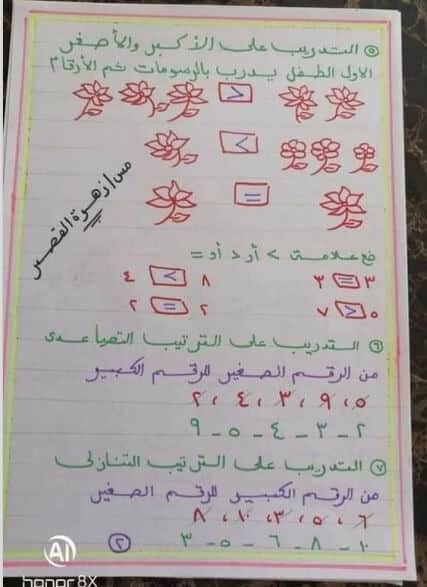 ٥ التدريب على الأكبر والأصغر
الاول الطفل يدرب بالرسومات ثم الأرقام
<
>
=
مس / زهرة القصر
ضع علامة > أو < أو =
٣ = ٣ ٨ > ٤
٥ < ٧ ٢ = ٢
٦ التدريب على الترتيب التصاعدى
من الرقم الصغير للرقم الكبير
٥ ، ٩ ، ٣ ، ٤ ، ٢
٢ - ٣ - ٤ - ٥ - ٩
٧ التدريب على الترتيب التنازلى
من الرقم الكبير للرقم الصغير
٦ ، ٥ ، ٣ ، ١٠ ، ٨
١٠ - ٨ - ٦ - ٥ - ٣
٢
AI
honor 8X